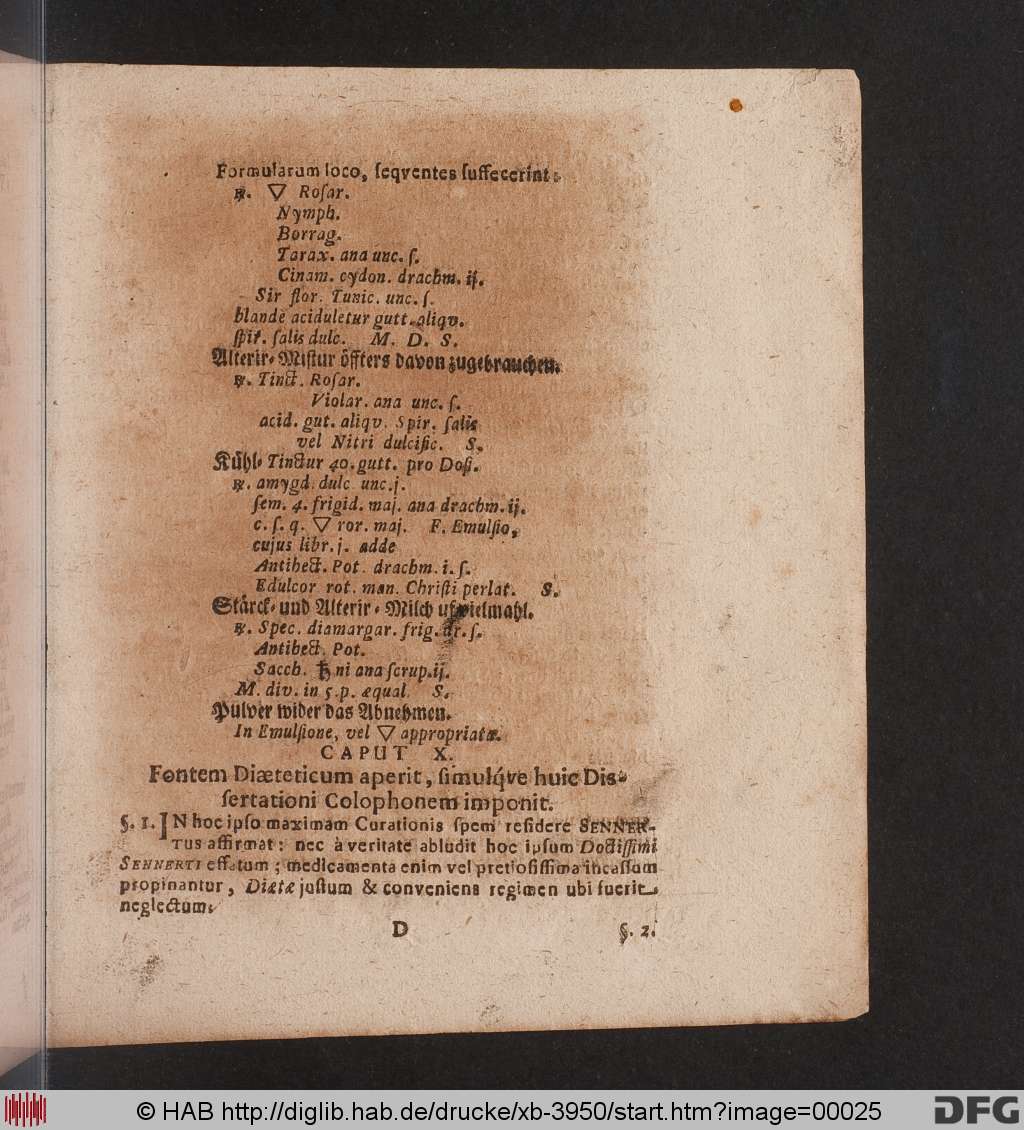 Formularum loco, ſeqventes ſuffecerint:
℞. 🜄 Roſar.
Nymph.
Borrag.
Tarax. ana unc. ſ.
Cinam. cydon. drachm. ij.
Sir flor. Tunic. unc. ſ.
blande aciduletur gutt. aliqv.
ſpir. ſalis dulc. M. D. S.
Alterir-Miſtur öffters davon zugebrauchen.
℞. Tinct. Roſar.
Violar. ana unc. ſ.
acid. gut. aliqv. Spir. ſalis
vel Nitri dulcific. S.
Kühl-Tinctur 40. gutt. pro Doſ.
℞. amygd. dulc unc. j.
ſem. 4. frigid. maj. ana drachm. ij.
c. ſ. q. 🜄 ror. maj. F. Emulſio,
cujus libr. j. adde
Antihect. Pot. drachm. i. ſ.
Edulcor rot. man. Chriſti perlat. S.
Stärck- und Alterir-Milch uf vielmahl.
℞. Spec. diamargar. frig. dr. ſ.
Antihect. Pot.
Sacch. ♄ni ana ſcrup. ij.
M. div. in 5. p. æqual. S.
Pulver wider das Abnehmen.
In Emulſione, vel 🜄 appropriata.
CAPUT X.
Fontem Diæteticum aperit, ſimulq́ve huic Diſ-
ſertationi Colophonem imponit.
§. 1. IN hoc ipſo maximam Curationis ſpem reſidere SENNER-
TUS affirmat: nec à veritate abludit hoc ipſum Doctiſſimi
SENNERTI effatum; medicamenta enim vel pretioſiſſima incaſſum
propinantur, Diætæ juſtum & conveniens regimen ubi fuerit
neglectum.
D §. 2.
© HAB http://diglib.hab.de/drucke/xb-3950/start.htm?image=00025
DFG